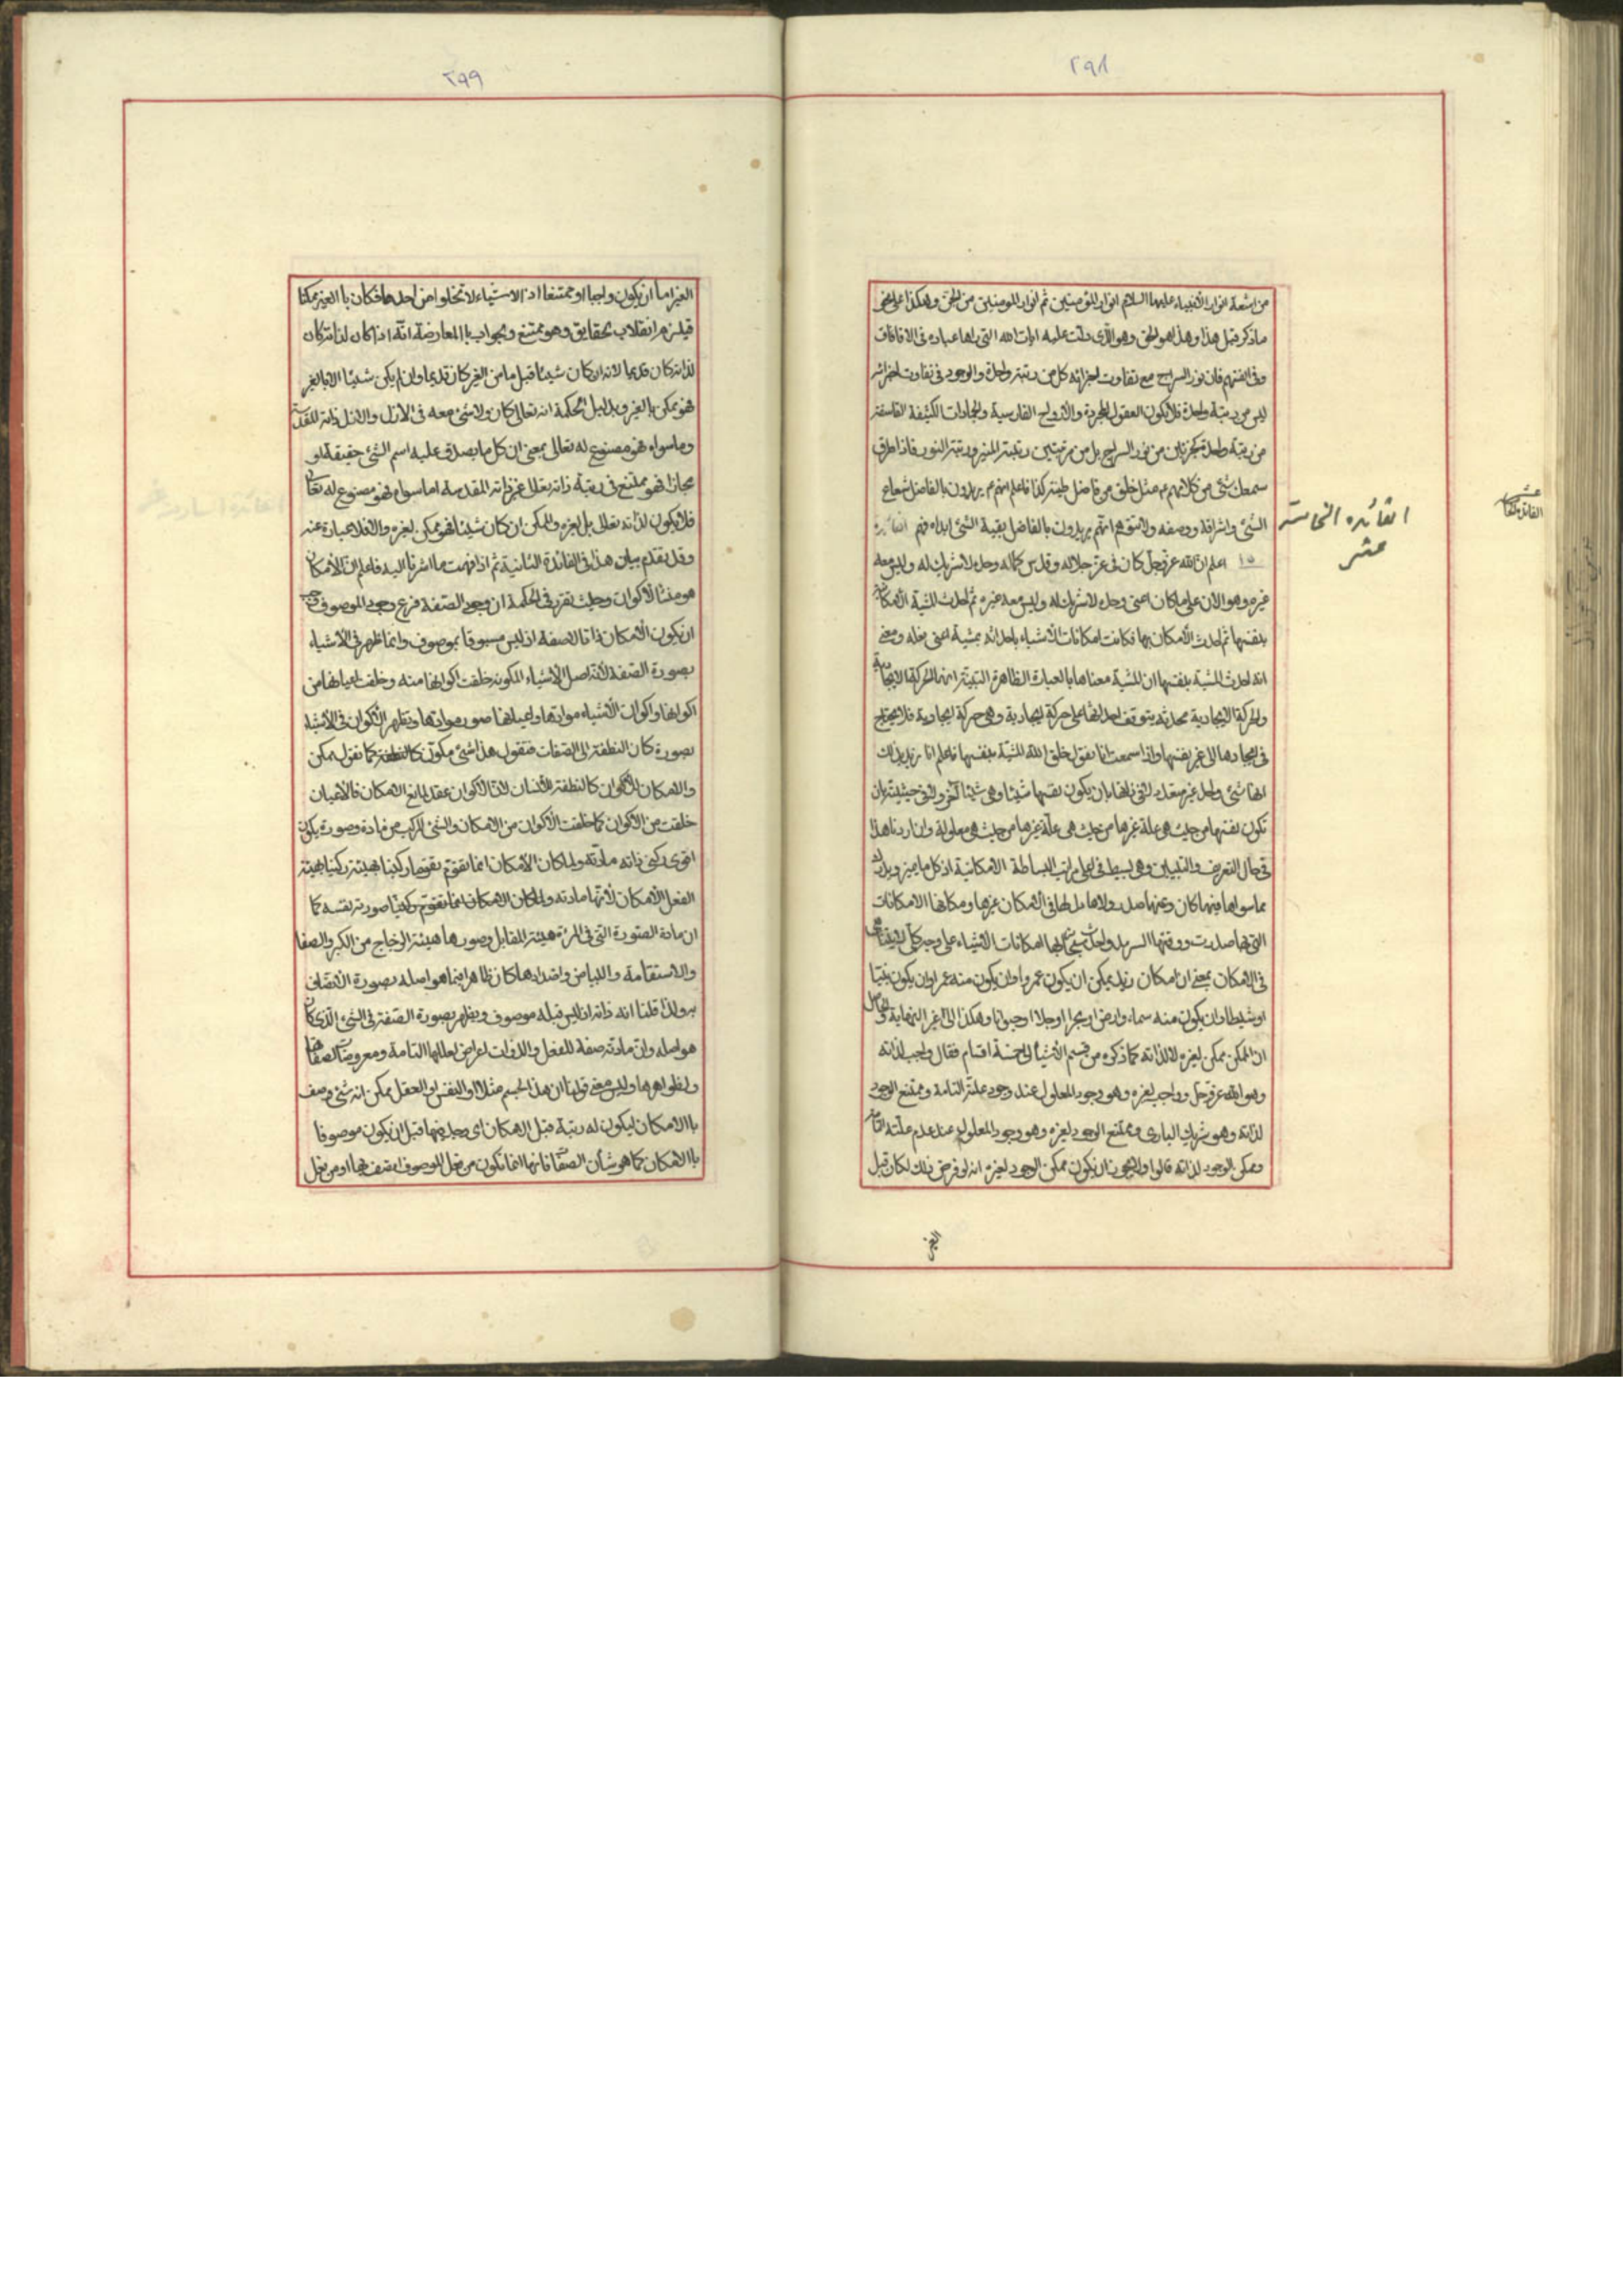 ٢٩٨
من اشعة انوار الأنبياء عليهم السلام انوار المؤمنين ثم انوار المومنين من الجن وهكذا على نحو
ما ذكر قبل هذا وهذا هو الحق وهو الذى دلت عليه ايات الله التى اراها عباده فى الافاق
وفى انفسهم فان نور السراج مع تفاوت اجزائه كل من رتبة واحدة والوجود فى تفاوت اجزائه
ليس من رتبة واحدة فلا يكون العقول المجردة والأرواح القادسية والجمادات الكثيفة الفاسقة
من رتبة واحدة كجزئين من نور السراج بل من مرتبتين رتبة المنير ورتبة النور فاذا طرق
سمعك شئ من كلامهم عم مثل خلق من فاضل طينة كذا فاعلم انهم عم يريدون بالفاضل شعاع
الشئ واشراقه ووصفه ولا تتوهم انهم يريدون بالفاضل بقية الشئ ابدا فافهم الفائدة
١٥ اعلم ان الله عز وجل كان فى عز جلاله وقدس كماله وحده لا شريك له وليس معه
غيره وهو الان على ما كان اعنى وحده لا شريك له وليس معه غيره ثم احدث المشية الأمكانية
بنفسها ثم احدث الأمكان بها فكانت امكانات الأشياء باحداثه بمشية اعنى بفعله ومعنى
انه احدث المشية بنفسها ان المشية معناها بالعبارة الظاهرة انها الحركة الايجادية
والحركة الايجادية محدثة يتوقف احداثها على حركة ايجادية وهى حركة ايجادية فلا يحتاج
فى ايجادها الى غير نفسها واذا سمعت انا نقول خلق الله المشية بنفسها فاعلم انا نريد بذلك
انها شئ واحد غير متعدد لا فى ذاتها بان يكون نفسها شيئا وهى شيئا آخر ولا فى حيثيته بان
تكون نفسها من حيث هى علة غيرها من حيث هى معلولة وان اردنا هذا
فى حال التعريف والتبيين وهى بسيط فى اعلى مراتب البساطة الامكانية اذ كل ما يميز ويدرك
مما سواها فبها كان وعنها صدر ولا مدخل لها فى الأمكان غيرها ومكانها الامكانات
التى بها صدرت ووقتها السرمد واحدث سبحانه بها امكانات الأشياء على وجه كلى لا يتناهى
فى الامكان بمعنى ان امكان زيد يمكن ان يكون عمروا وان يكون منه عمرا وان يكون نبيا
او شيطانا وان يكون منه سماء وارض او بحرا او جبلا او حيوانا وهكذا الى غير النهاية والحاصل
ان الممكن ممكن لغيره لا لذاته كما ذكره من قسم الأشياء الى خمسة اقسام فقال واجب لذاته
وهو الله عز وجل وواجب لغيره وهو وجود المعلول عند وجود علته التامة وممتنع الوجود
لذاته وهو شريك البارى وممتنع الوجود لغيره وهو وجود المعلول عند عدم علته التامة
وممكن الوجود لذاته قالوا ولا يجوز ان يكون ممكن الوجود لغيره انه لو فرض ذلك لكان قبل
الغير
الفائده الخامسة
عشر
٢٩٩
الغير اما ان يكون واجبا او ممتنعا اذ الاشياء لا تخلوا من احدها فكان با الغير ممكنا
فيلزم انقلاب الحقايق وهو ممتنع والجواب با المعارضة انه اذا كان لذاته كان
لذاته كان قديما لانه ان كان شيئا قبل ما من الغير كان قديما وان لم يكن شيئا الا بالغير
فهو ممكن بالغير وبدليل الحكمة انه تعالى كان ولا شئ معه فى الأزل والازل ذاته المقدسة
وما سواه فهو مصنوع له تعالى بمعنى ان كل ما يصدق عليه اسم الشئ حقيقة او
مجازا فهو ممتنع فى رتبة ذاته تعالى غير ذاته المقدسة اما سواه فهو مصنوع له تعالى
فلا يكون لذاته تعالى بل لغيره والممكن ان كان شيئا فهو ممكن لغيره والا فلا عبارة عنه
وقد تقدم بيان هذا فى الفائدة الثانية ثم اذا فهمت ما اشرنا اليه فاعلم ان الأمكان
هو منشأ الأكوان وحيث تقرر فى الحكمة ان وجود الصفة فرع وجود الموصوف وجب
ان يكون الأمكان ذاتا لا صفة اذ ليس مسبوقا بموصوف وانما ظهر فى الأشياء
بصورة الصفة لأنه اصل الأشياء المكونة خلقت اكوانها منه وخلقت اعيانها من
اكوانها واكوان الأشياء موادها واعيانها صور موادها ويظهر الأكوان فى الأشياء
بصورة كان النطفة الى الصفات فنقول هذا شئ مكون كالنطفة كما نقول ممكن
والامكان للأكوان كالنطفة للأنسان لان الأكوان عقد لمايع الامكان فالاعيان
خلقت من الاكوان كما خلقت الأكوان من الامكان والشئ المركب من مادة وصورة يكون
اقوى ركنى ذاته مادته ولما كان الأمكان انما تقوم تقوما ركنيا بهيئة ركنيا بهيئة
الفعل الأمكان لأنها مادته ولما كان الامكان انما تقوم ركنيا صورة نفسه كما
ان مادة الصورة التى فى المرآة هيئة المقابل وصورها هيئة الزجاج من الكبر والصفا
والاستقامة والبياض واضدادها كان ظاهرا بما هو اصله بصورة الاتصاف
به ولذا قلنا انه ذات اذ ليس قبله موصوف ويظهر بصورة الصفة فى الشئ الذى كان
هو اصله وان مادته صفة للفعل والذوات اعراض لعللها التامة ومعروضات لصفاتها
ولظواهرها وليس معنى قولنا ان هذا الجسم مثلا او النفس او العقل ممكن انه شئ وصف
با الامكان ليكون له رتبة قبل الامكان اى وجد فيها قبل ان يكون موصوفا
با الامكان كما هو شأن الصفات فانها انما تكون من فعل الموصوف اتصف بها او من فعل